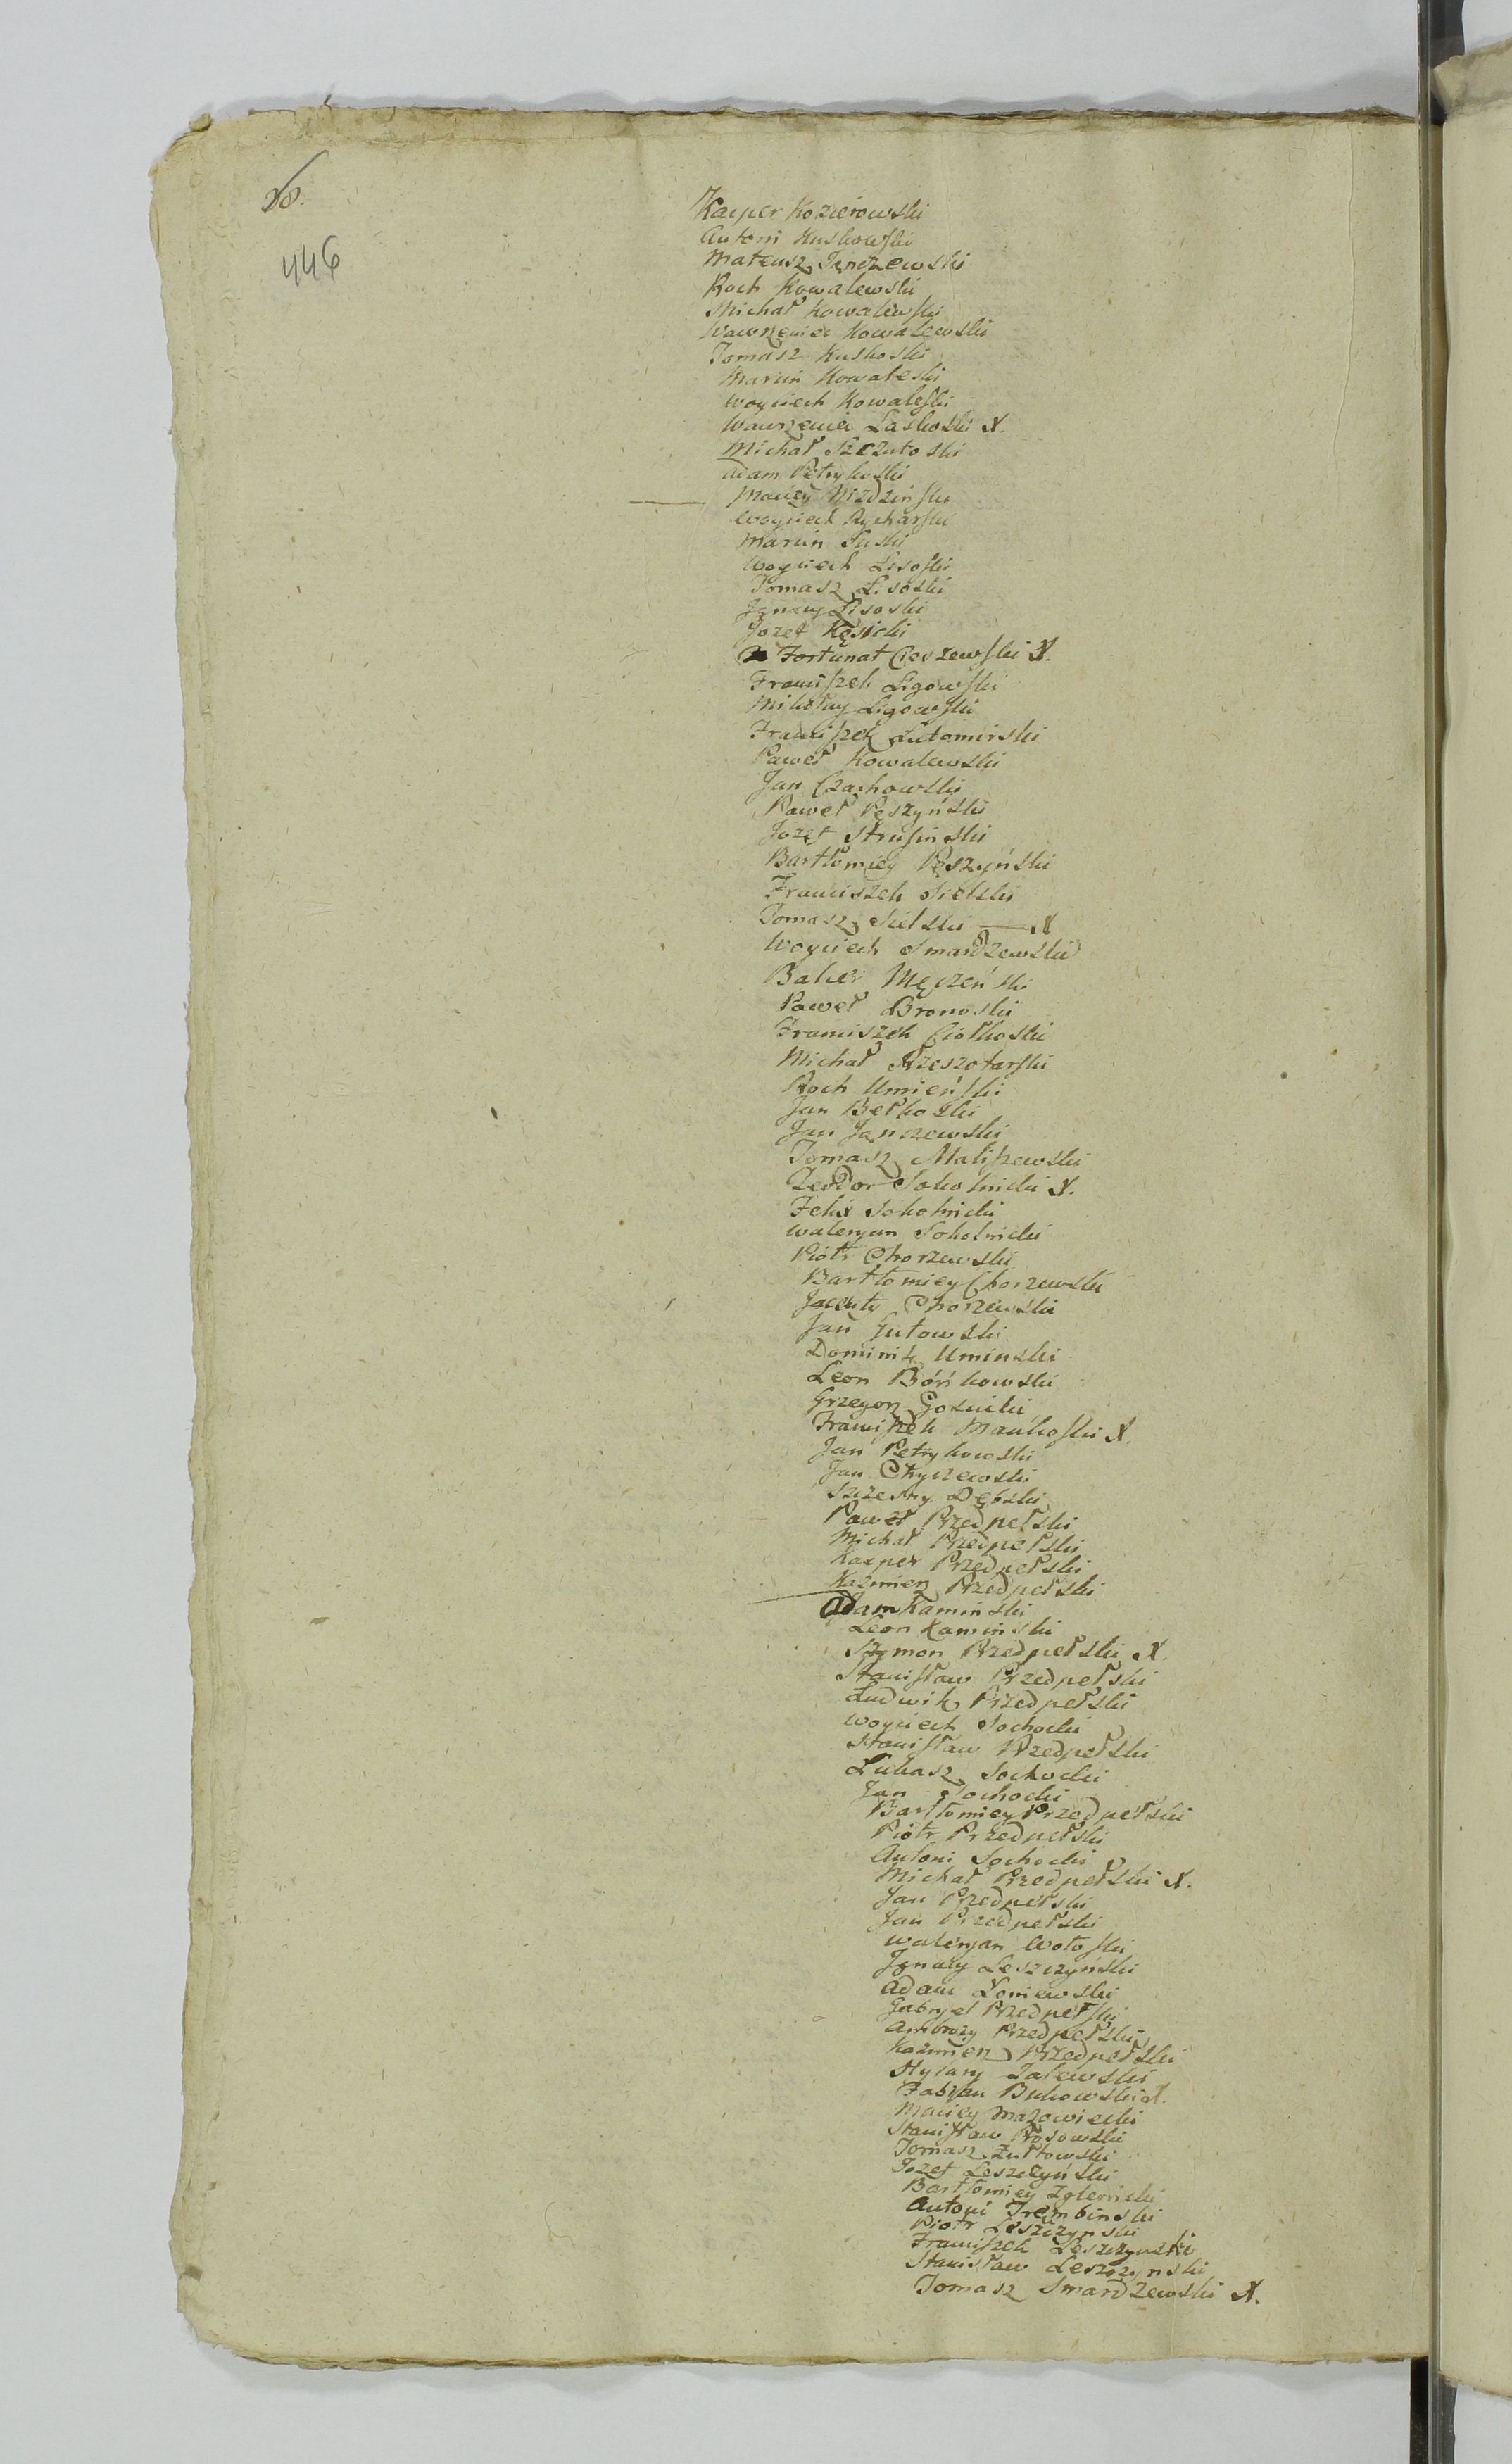 28.
446
Kacper Kozierowski
Antoni Kuskowski
Mateusz Janczewski
Roch Kowalewski
Michał Kowalewski
Wawrzeniec Kowalewski
Tomasz Kuskoski
Marcin Kowaleski
Woyciech Kowaleski
Wawrzeniec Laskoski X.
Michał Szczutoski
Adam Petrykoski
Maciey Niździński
Woyciech Rycharski
Marcin Suski
Woyciech Lisoski
Tomasz Lisoski
Jgnacy Lisoski
Jozef Kęsicki
Fortunat Cieszewski X.
Franciszek Ligowski
Mikołay Ligowski
Franciszek Lutomirski
Paweł Kowalewski
Jan Czachowski
Paweł Pęszyński
Jozef Strusinski
Bartłomiey Pęszyński
Franciszek Sielski
Tomasz Sielski — X
Woyciech Smardzewski
Balcer Męczeński
Paweł Bronoski
Franciszek Ciołkoski
Michał Rzeszotarski
Roch Umieński
Jan Bełkoski
Jan Janczewski
Tomasz Maliszewski
Teodor Sokolnicki X.
Felix Sokolnicki
Waleryan Sokolnicki
Piotr Chorzewski
Bartłomiey Chorzewski
Jacenty Chorzewski
Jan Gutowski
Dominik Uminski
Leon Bońkowski
Grzegorz Gosicki
Franciszek Mańkoski X.
Jan Petrykowski
Jan Chyczewski
Szczesny Dębski
Paweł Przedpełski
Michał Przedpełski
Kacper Przedpełski
Kazimierz Przedpełski
Adam Kaminski
Leon Kaminski
Szymon Przedpełski X.
Stanisław Przedpełski
Ludwik Przedpełski
Woyciech Sochocki
Stanisław Przedpełski
Łukasz Sochocki
Jan Sochocki
Bartłomiey Przedpełski
Piotr Przedpełski
Antoni Sochocki
Michał Przedpełski X.
Jan Przedpełski
Jan Przedpełski
Waleryan Wołoski
Jgnacy Leszczyński
Adam Łoniewski
Gabryel Przedpełski
Ambroży Przedpełski
Kazimierz Przedpełski
Hylary Zalewski
Fabian Bukowski X.
Maciey Mazowiecki
Stanisław Rosowski
Tomasz Żułtowski
Jozef Leszczyński
Bartłomiey Zglenicki
Antoni Trembinski
Piotr Leszczynski
Franciszek Leszczynski
Stanisław Leszczynski
Tomasz Smardzewski X.